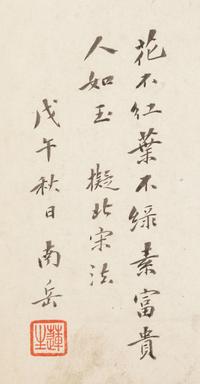 花不红葉不緑素富貴
人如玉 擬北宋法
戊午秋日南岳
蓮生